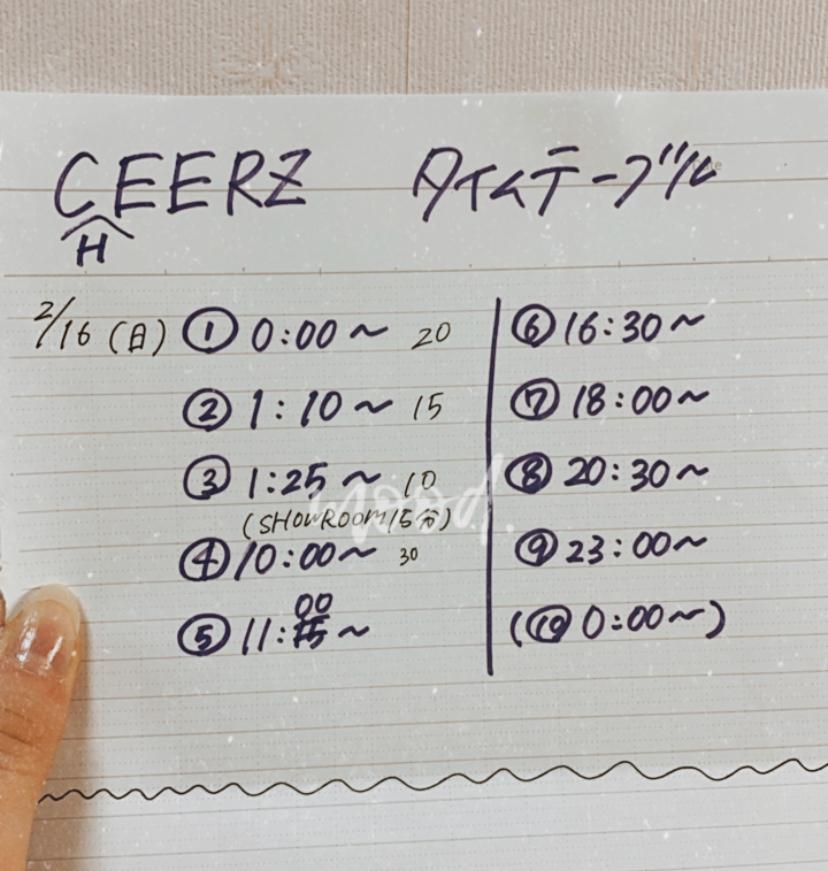 CHEERZ タイムテーブル
2/16(日) ① 0:00〜 20
② 1:10〜 15
③ 1:25〜 10
(SHOWROOM 15分)
④ 10:00〜 30
⑤ 11:00〜
⑥ 16:30〜
⑦ 18:00〜
⑧ 20:30〜
⑨ 23:00〜
(⑩ 0:00〜)
mood.